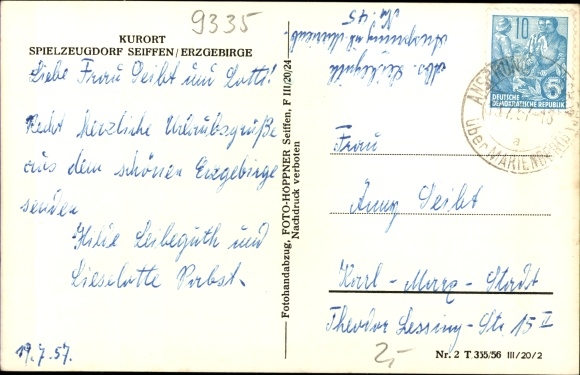 9335
KURORT
SPIELZEUGDORF SEIFFEN/ERZGEBIRGE
Liebe Frau Seibt und Lotti!
Recht Herzliche Urlaubsgrüße
aus dem schönen Erzgebirge
senden
Hilde Leibeguth und
Lieselotte Pabst.
19.7.57.
Fotohandabzug, FOTO-HÖPPNER Seiffen, F III/20/24
Nachdruck verboten
Abs. Leibeguth
Ansprung üb. Marienb.
Nr. 45
10
5
DEUTSCHE
DEMOKRATISCHE REPUBLIK
ANSPRUNG
über MARIENBERG
a
Frau
Anny Seibt
Karl-Marx-Stadt
Theodor Lessing-Str. 15 II
2,-
Nr. 2 T 355/56 III/20/2